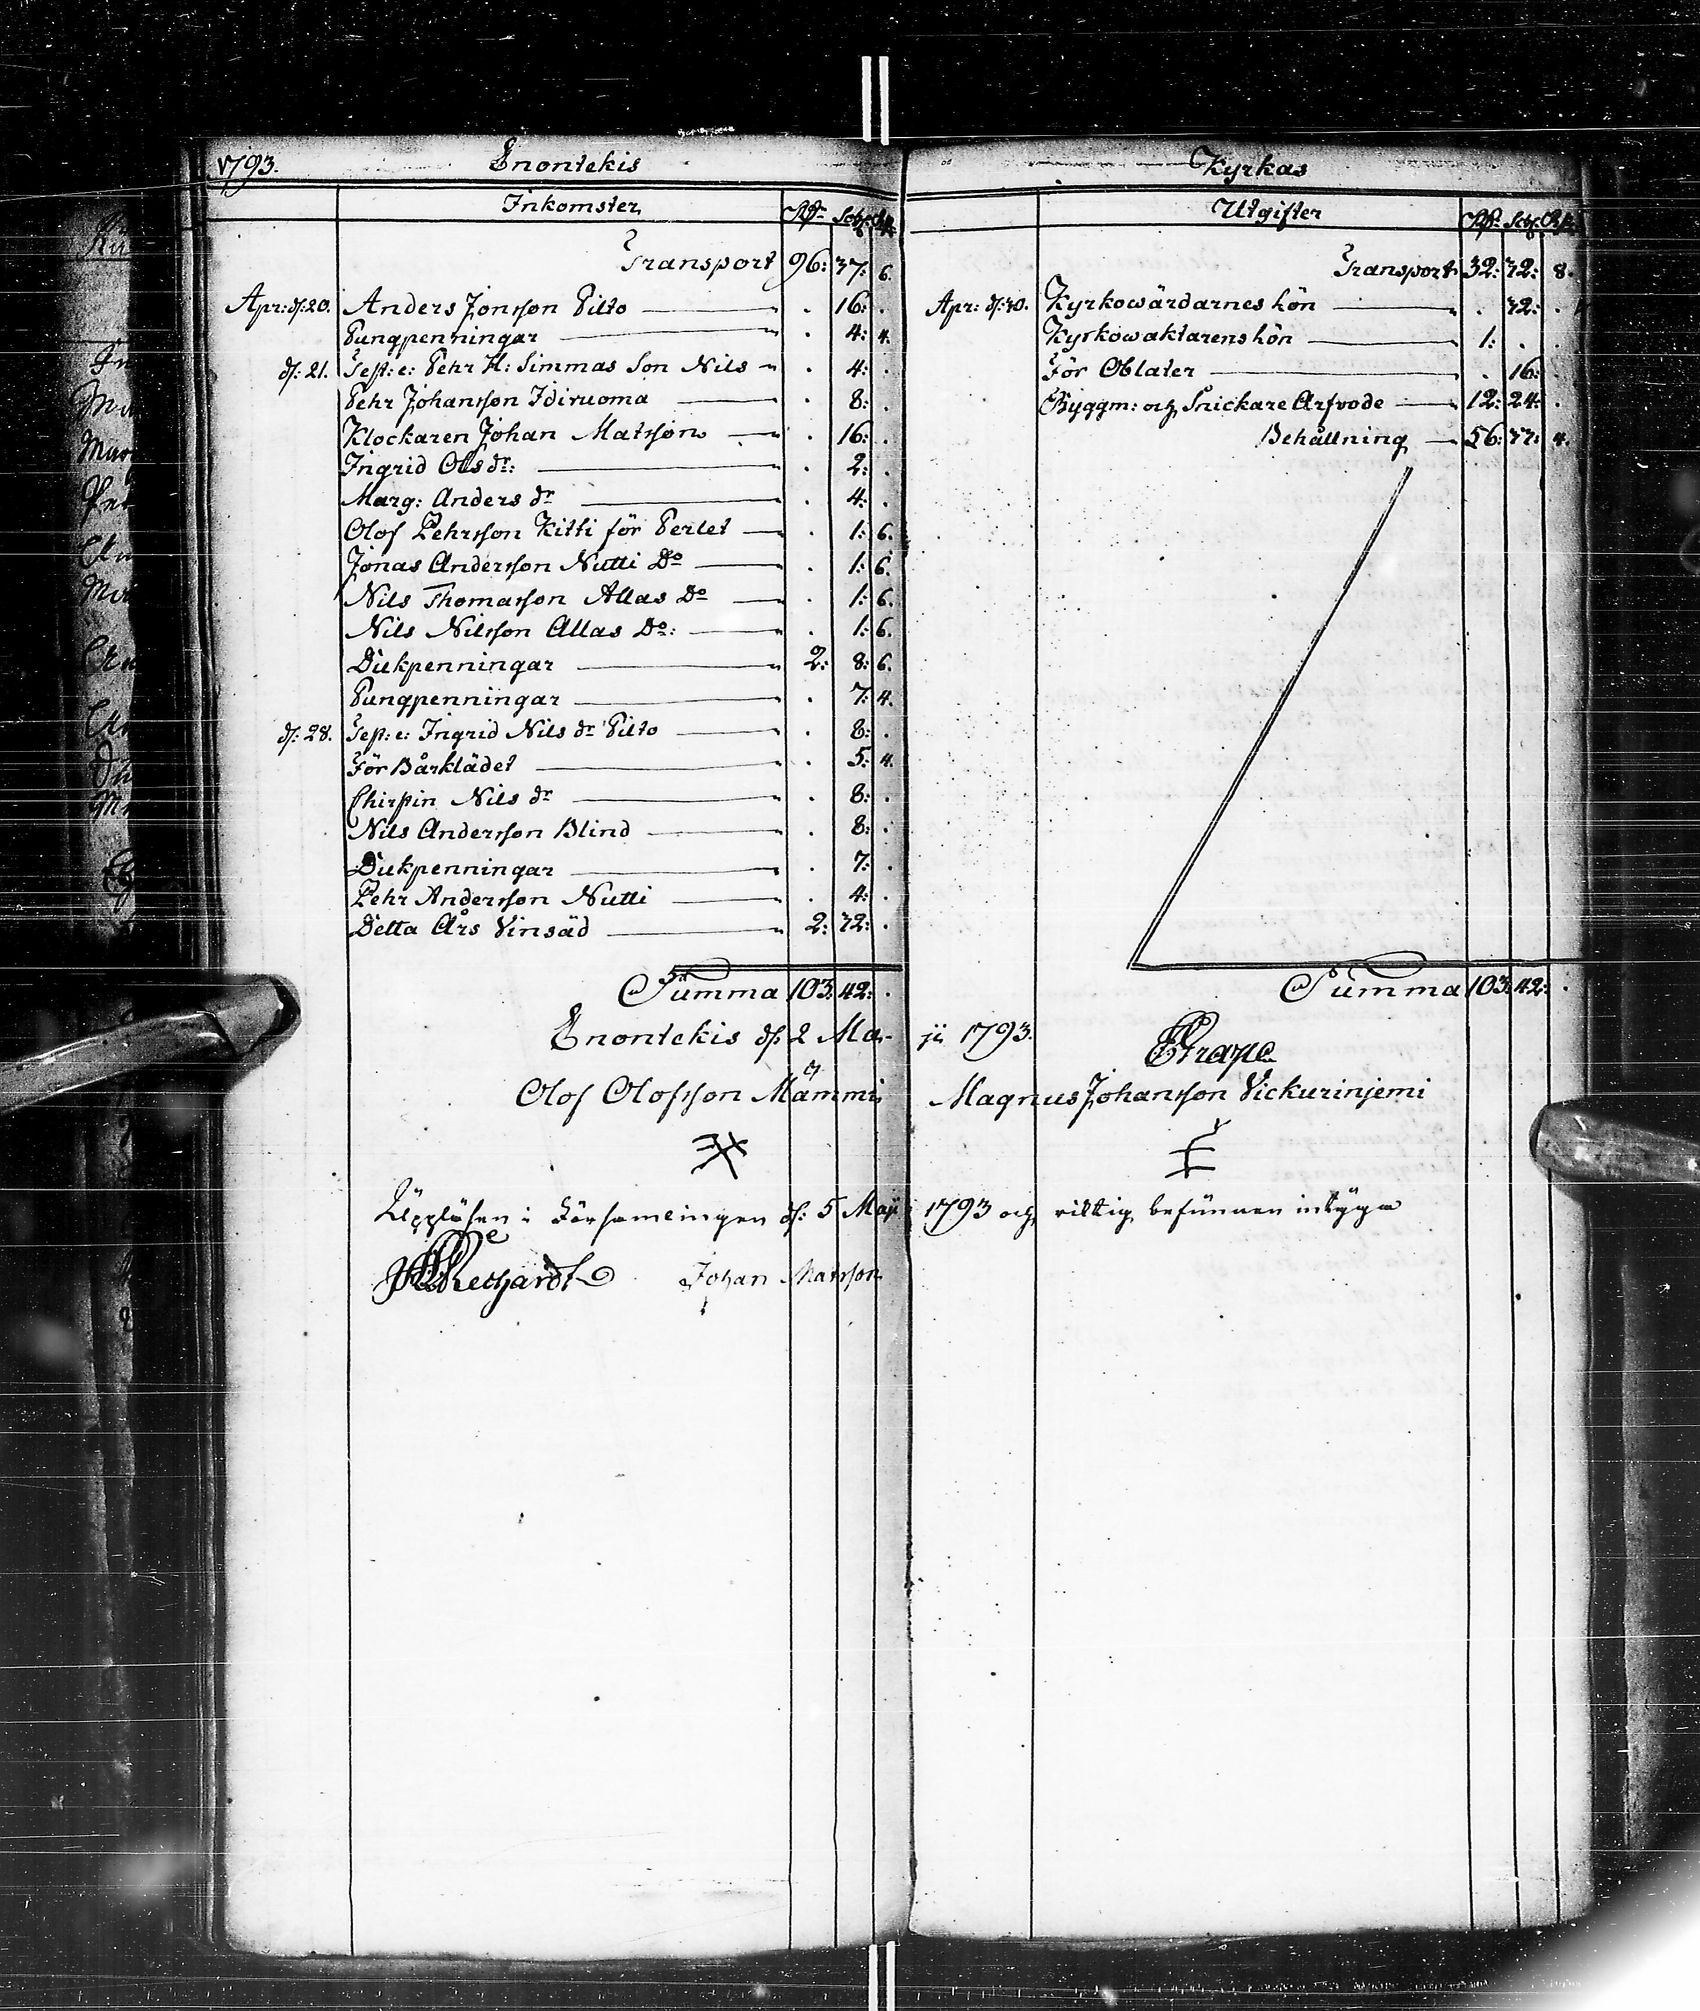 1793. Enontekis
Inkomster Rdr Sch: Rst:
Transport 96: 37: 6.
Apr: d: 20. Anders Jonsson Pilto . 16: .
Pungpenningar . 4: 4.
d: 21. Test: e: Pehr H: Simmas Son Nils . 4: .
Pehr Johansson Idivuoma . 8: .
Klockaren Johan Matsson . 16: .
Ingrid Olsdr: . 2: .
Marg: Anders dr . 4: .
Olof Pehrsson Kitti för Perlet . 1: 6.
Jonas Andersson Nutti Do . 1: 6.
Nils Thomasson Allas Do . 1: 6.
Nils Nilsson Allas Do: . 1: 6.
Diskpenningar 2: 8: 6.
Pungpenningar . 7: 4.
d: 28. Test: e: Ingrid Nils dr Pilto . 8: .
För Bårklädet . 5: 4.
Chirstin Nils dr . 8: .
Nils Andersson Blind . 8: .
Diskpenningar . 7: .
Pehr Andersson Nutti . 4: .
Detta Års Vinsäd 2: 32: .
Summa 103: 42: .
Kyrkas
Utgifter Rdr Sch: Rst:
Transport 32: 32: 8.
Apr: d: 30. Kyrkowärdarnes lön . 32: .
Kyrkowaktarens lön 1: . .
För Oblater . 16: .
Byggm: och Snickare Arfvode 12: 24: .
Behållning 56: 33: 4.
Summa 103: 42: .
Enontekis d: 2 Maji 1793.
EGrape
Olof Olofsson Mämmi Magnus Johansson Vickurinjemi
Uppläsen i Församlingen d: 5 Maji 1793 och riktig befunnen intyga
Johan Matsson